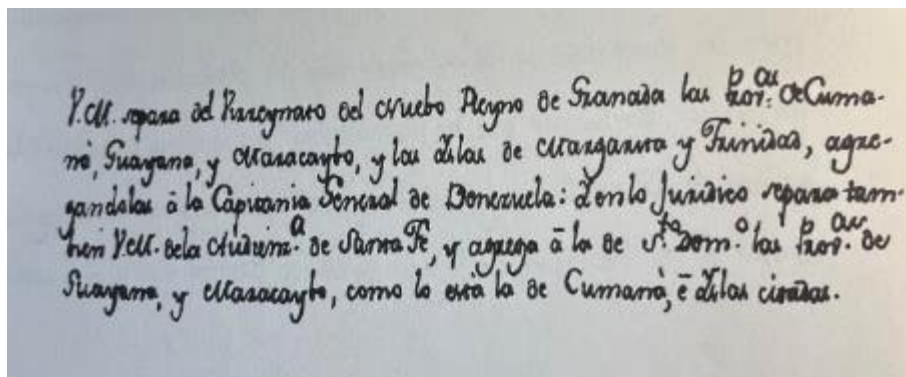 V.M. separa del Virreynato del Nuebo Reyno de Granada las prov.as de Cuma-
ná, Guayana, y Maracaybo, y las Islas de Margarita y Trinidad, agre-
gandolas â la Capitania General de Venezuela: I en lo Juridico separa tam-
bien V.M. dela Audienz.a de Santa Fe, y agrega â la de S.to Dom.o las prov.as de
Guayana, y Maracaybo, como lo està la de Cumanà, ê Islas citadas.